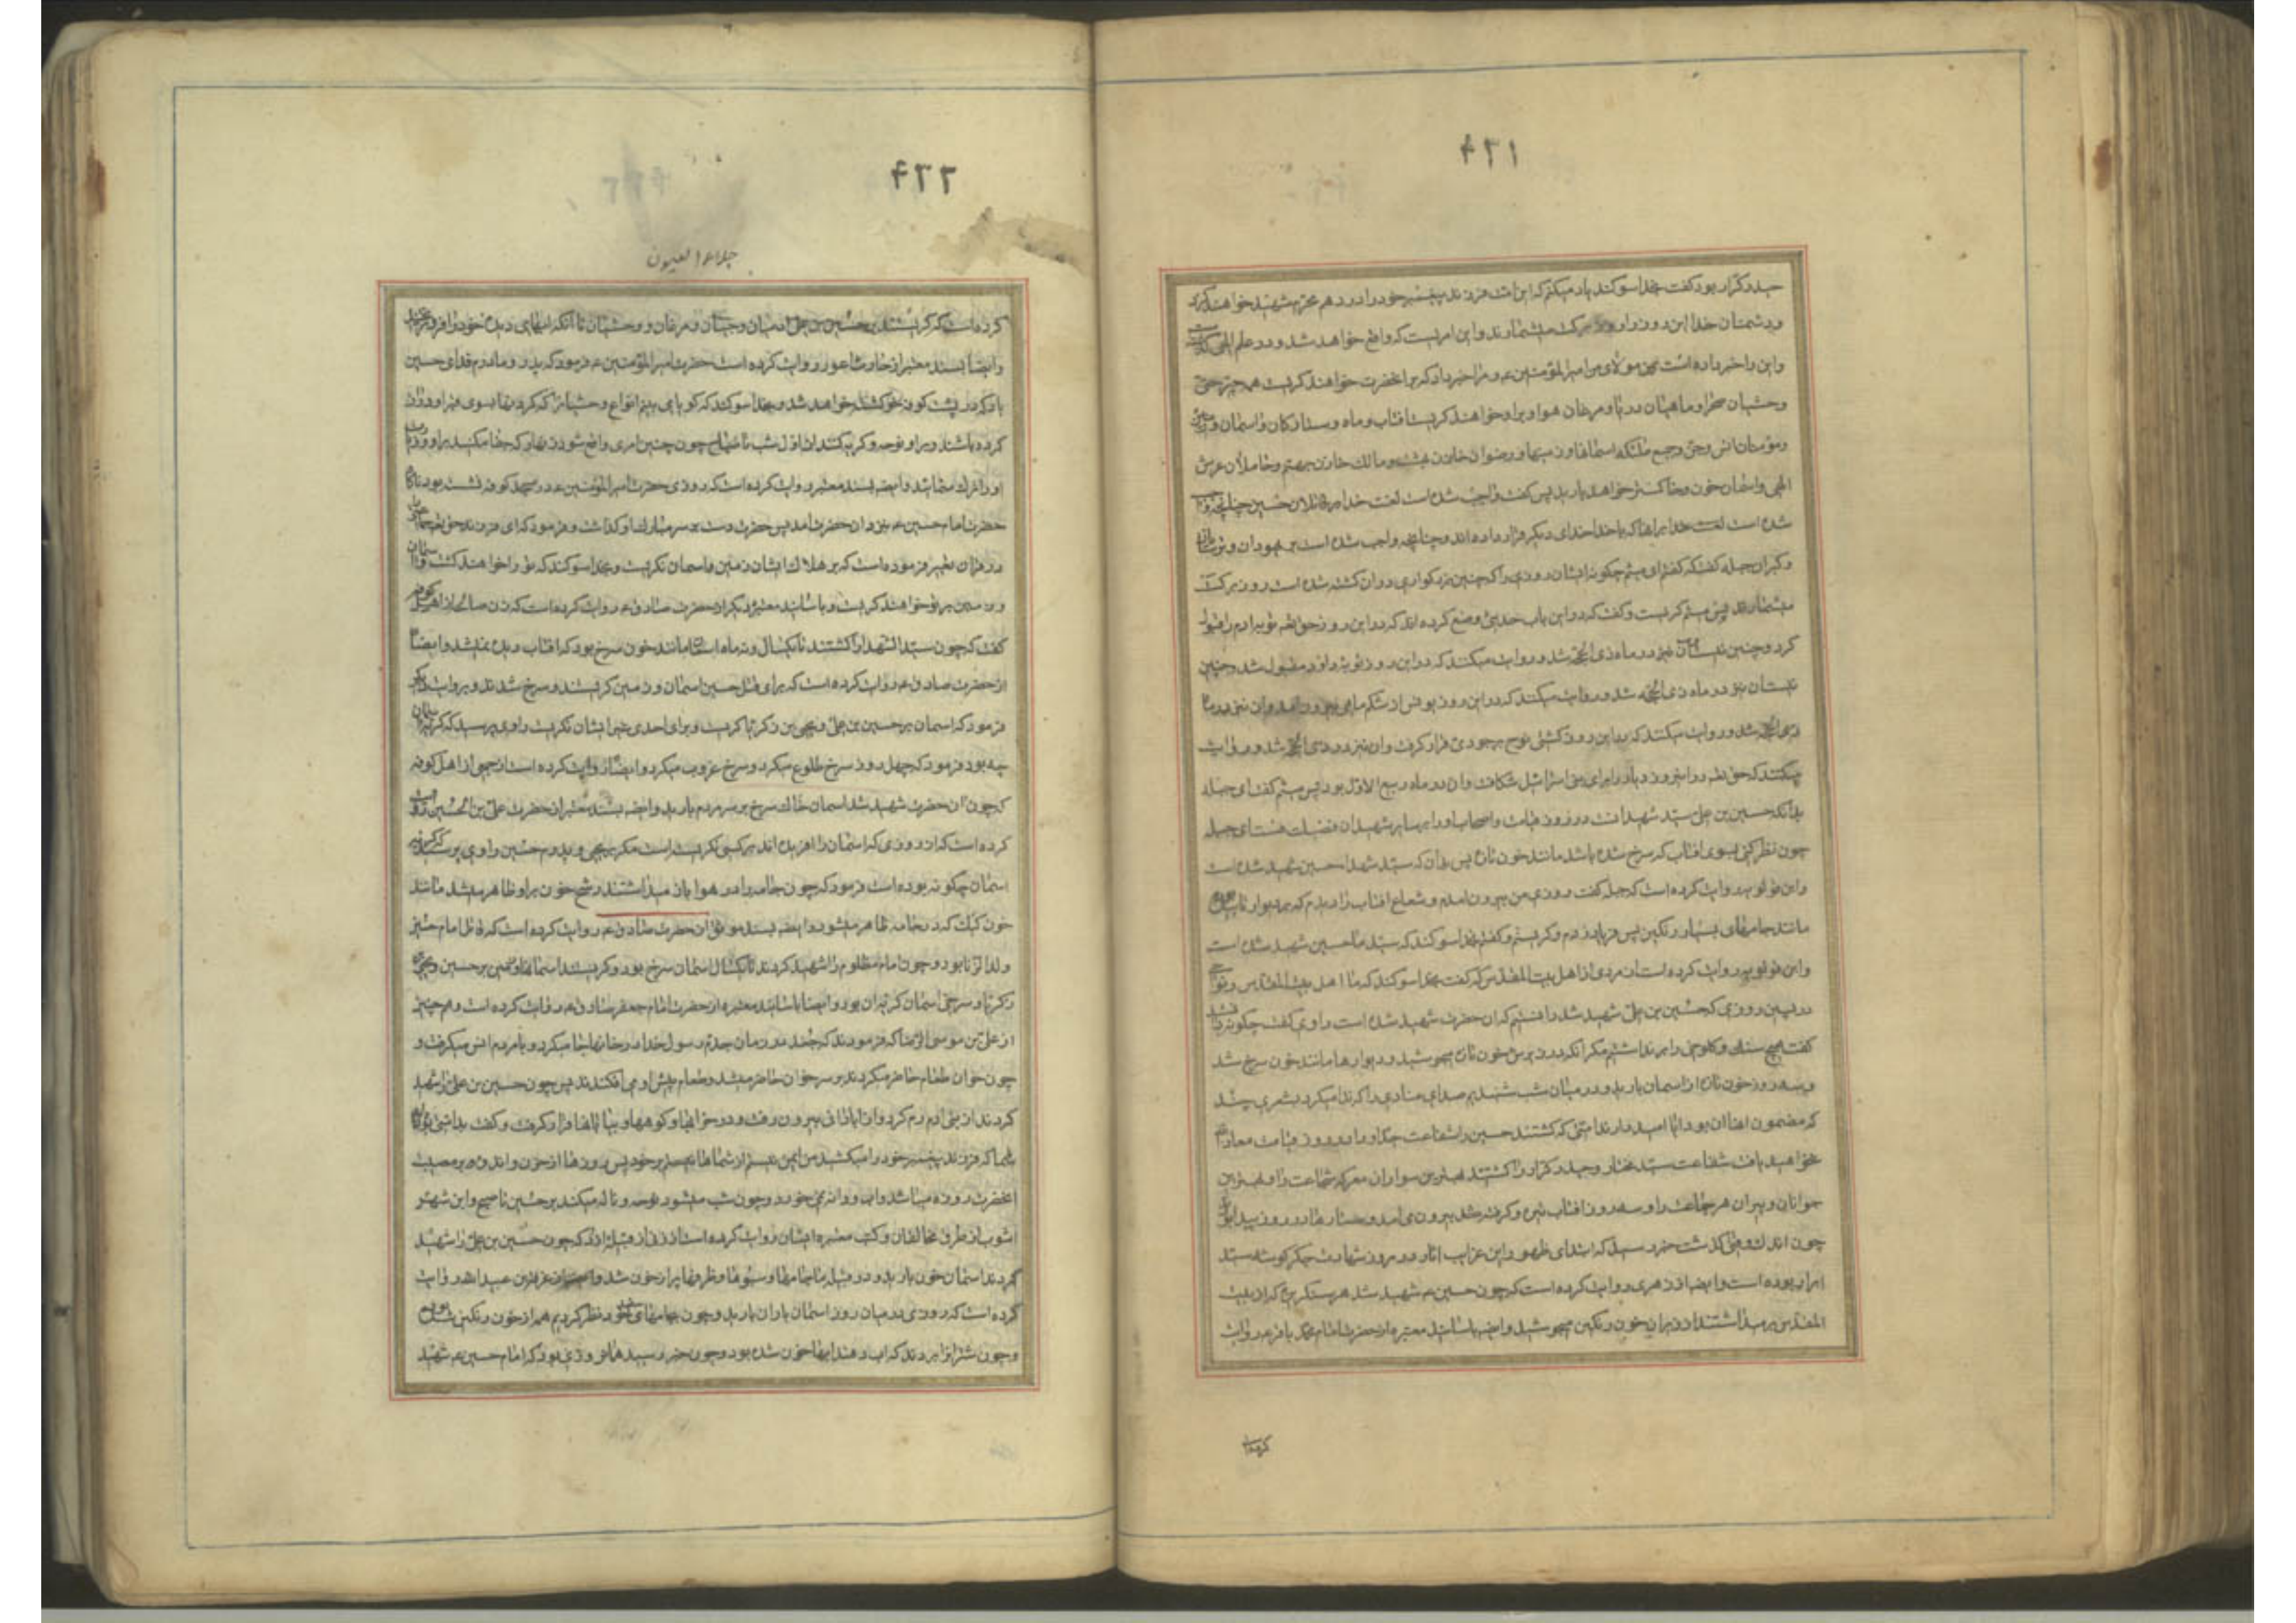 ۴۲۱
حیدر کرار بود گفت بخدا سوگند یاد میکنم که این امت فرزند پیغمبر خود را در دهم محرم شهید خواهند کرد
و دشمنان خدا این روز را روز برکت میشمارند و این امریست که واقع خواهد شد و در علم الهی گذشته
و این را خبر داده است بمن مولای من امیرالمؤمنین ع و مرا خبر داد که بر انحضرت خواهند گریست همه چیز حتی
وحشیان صحرا و ماهیان دریا و مرغان هوا و بر او خواهند گریست افتاب و ماه و ستارگان و اسمان و زمین
و مؤمنان انس و جن و جمیع ملئکه اسمانها و زمینها و رضوان خازن بهشت و مالک خازن جهنم و حاملان عرش
الهی و اسمان خون و خاکستر خواهد بارید پس گفت واجب شده است لعنت خدا بر قاتلان حسین چنانچه واجب
شده است لعنت خدا بر انها که با خدا خدای دیگر قرار داده اند و چنانچه واجب شده است بر یهودان و ترسایان
و گبران جبله گفت که گفتم ای میثم چگونه ایشان روزی را که چنین بزرگواری دران کشته شده است روز برکت
میشمارند پس میثم گریست و گفت که در این باب حدیثی وضع کرده اند که در این روز حقتعالی توبه ادم را قبول
کرد و چنین نیست ان نیز در ماه ذی الحجه شد و روایت میکنند که در این روز توبه داود مقبول شد و چنین
نیست ان نیز در ماه ذی الحجه شد و روایت میکنند که در این روز یونس از شکم ماهی بیرون امد و ان نیز در ماه
ذی الحجه شد و روایت میکنند که در این روز کشتی نوح بر جودی قرار گرفت و ان نیز در ذی الحجه شد و روایت
میکنند که حق تعالی در این روز دریا را برای بنی اسرائیل شکافت و ان در ماه ربیع الاول بود پس میثم گفت ای جبله
بدانکه حسین بن علی سید شهدا است در روز قیامت و اصحاب او را بر سایر شهیدان فضیلت هست ای جبله
چون نظر کنی بسوی افتاب که سرخ شده باشد مانند خون تازه پس بدان که سید شهدا حسین شهید شده است
و ابن قولویه روایت کرده است که جبله گفت روزی من بیرون امدم و شعاع افتاب را دیدم که بر دیوار تابیده
مانند جامهای بسیار رنگین پس فریاد زدم و گریستم و گفتم بخدا سوگند که سید ما حسین شهید شده است
و ابن قولویه روایت کرده است از مردی از اهل بیت المقدس که گفت بخدا سوگند که ما اهل بیت المقدس و نواحی
در پسین روزی که حسین بن علی شهید شد دانستیم که ان حضرت شهید شده است راوی گفت چگونه دانستید
گفت هیچ سنگ و کلوخی را بر نداشتیم مگر انکه در زیرش خون تازه میجوشید و دیوارها مانند خون سرخ شد
و سه روز خون تازه از اسمان بارید و در میان شب شنیدیم صدای منادی را که ندا میکرد بشعری چند
که مضمون انها ان بود ایا امید دارند امتی که کشتند حسین را شفاعت جد او را در روز قیامت معاذ الله
نخواهید یافت شفاعت سید مختار و حیدر کرار را کشتند بهترین سواران معرکه شجاعت را و بهترین
جوانان و پیران هر جماعت را و سه روز افتاب تیره و گرفته بیرون می امد و ستارها در روز پیدا بود
چون اندک وقتی گذشت خبر رسید که ابتدای ظهور این غرایب اثار در روز شهادت جگرگوشه سید
ابرار بوده است و ایضا از زهری روایت کرده است که چون حسین ع شهید شد هر سنگریزه که از بیت
المقدس بر میداشتند از زیر ان خون رنگین میجوشید و ایضا باسانید معتبره از حضرت امام محمد باقر ع روایت
کرده است
۴۲۲
جلاء العیون
کرده است که گریستند بر حسین بن علی ادمیان و جنیان و مرغان و وحشیان تا انکه ابهای دیده خود را فرو ریختند
و ایضا بسند معتبر از حارث اعور روایت کرده است حضرت امیرالمؤمنین ع فرمود که پدر و مادرم فدای حسین
باد که در پشت کوفه کشته خواهد شد و بخدا سوگند که گویا می بینم انواع وحشیان را که گردنها بسوی قبر او دراز
کرده باشند و بر او نوحه و گریه کنند از اول شب تا صباح چون چنین امری واقع شود زنهار که جفا مکنید بر او و زیارت
او را ترک منمائید و ایضا بسند معتبر روایت کرده است که روزی حضرت امیرالمؤمنین ع در مسجد کوفه نشسته بود ناگاه
حضرت امام حسین ع بنزد ان حضرت امد پس حضرت دست بر سر مبارک او گذاشت و فرمود که ای فرزند حق تعالی جماعتی
در قران تعییر فرموده است که بر هلاک ایشان زمین و اسمان نگریست و بخدا سوگند که تو را خواهند کشت و اسمان
و زمین بر تو خواهند گریست و باسانید معتبره دیگر از حضرت صادق ع روایت کرده است که زن صالحه از اهل کوفه
گفت که چون سید الشهدا را کشتند تا یکسال و نه ماه اسمان مانند خون سرخ بود که افتاب دیده نمیشد و ایضا
از حضرت صادق ع روایت کرده است که برای قتل حسین اسمان و زمین گریستند و سرخ شدند و بروایت دیگر
فرمود که اسمان بر حسین بن علی و یحیی بن زکریا گریست و برای احدی غیر ایشان نگریست راوی پرسید که گریه اسمان
چه بود فرمود که چهل روز سرخ طلوع میکرد و سرخ غروب میکرد و ایضا روایت کرده است از جمعی از اهل کوفه
که چون ان حضرت شهید شد اسمان خاک سرخ بر سر مردم بارید و ایضا بسند معتبر از حضرت علی بن الحسین روایت
کرده است که از روزی که اسمان را افریده اند بر کسی نگریسته است مگر بر یحیی و پدرم حسین راوی پرسید که گریه
اسمان چگونه بوده است فرمود که چون جامه را در هوا باز میداشتند رشح خون بر او ظاهر میشد مانند
خون کیک که در جامه ظاهر میشود و ایضا بسند موثق از حضرت صادق ع روایت کرده است که قاتل امام حسین
ولد الزنا بود و چون امام مظلوم را شهید کردند تا یکسال اسمان سرخ بود و گریستند اسمانها و زمین بر حسین و یحیی بن
زکریا و سرخی اسمان گریه ان بود و ایضا باسانید معتبره از حضرت امام جعفر صادق ع روایت کرده است و هم چنین
از علی بن موسی الرضا که فرمودند که جغد در زمان جدم رسول خدا در خانها جا میکرد و با مردم انس میگرفت و
چون خوان طعام حاضر میکردند بر سر خوان حاضر میشد و طعام پیش او می افکندند پس چون حسین بن علی را شهید
کردند از بنی ادم رم کرد و از ابادانی بیرون رفت و در خرابها و کوهها و بیابانها قرار گرفت و گفت بد امتی بودید
شما که فرزند پیغمبر خود را میکشید من ایمن نیستم از شما بر خود پس روزها از حزن و اندوه بر مصیبت
انحضرت روزه میباشد و اب و دانه نمی خورد و چون شب میشود نوحه و ناله میکند بر حسین تا صبح و ابن شهر
اشوب از طرق مخالفان و کتب معتبره ایشان روایت کرده است از زنی از قبیله ازد که چون حسین بن علی را شهید
کردند اسمان خون بارید و در قبیله ما جامها و سبوها و ظرفها پر از خون شد و عبدالله روایت
کرده است که روزی در میان روز اسمان باران بارید و چون بجامهای خود نظر کردیم همه از خون رنگین شده بود
و چون شتران را بردند که اب دهند ابها خون شده بود و چون خبر رسید همان روزی بود که امام حسین ع شهید